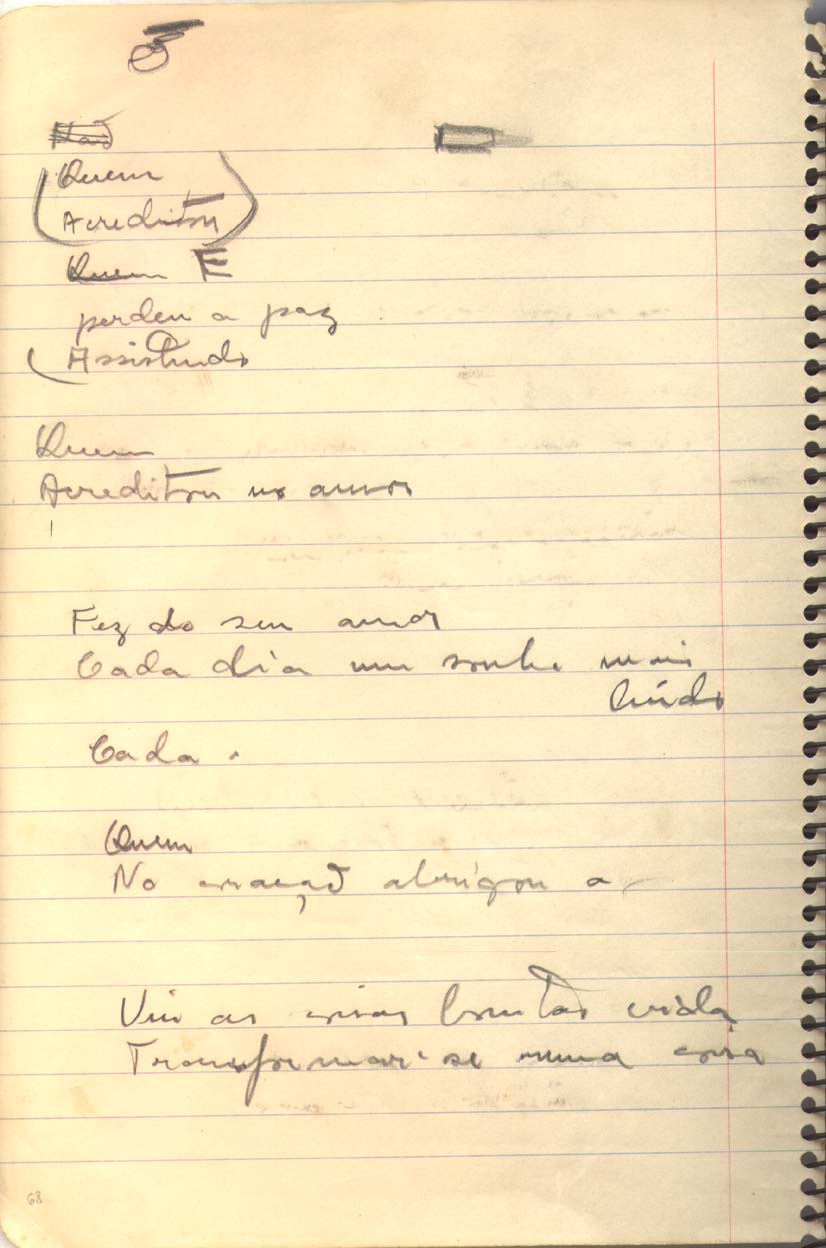 Não
(Quem
Acreditou)
Quem E
perdeu a paz
(Assistindo
Quem
Acreditou no amor
Fez do seu amor
Cada dia um sonho mais
lindo
Cada
Quem
No coração abrigou a
Viu as coisas bonitas vida
Transformar-se numa coisa
68